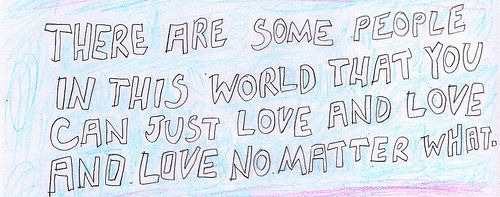 THERE ARE SOME PEOPLE
IN THIS WORLD THAT YOU
CAN JUST LOVE AND LOVE
AND LOVE NO MATTER WHAT.